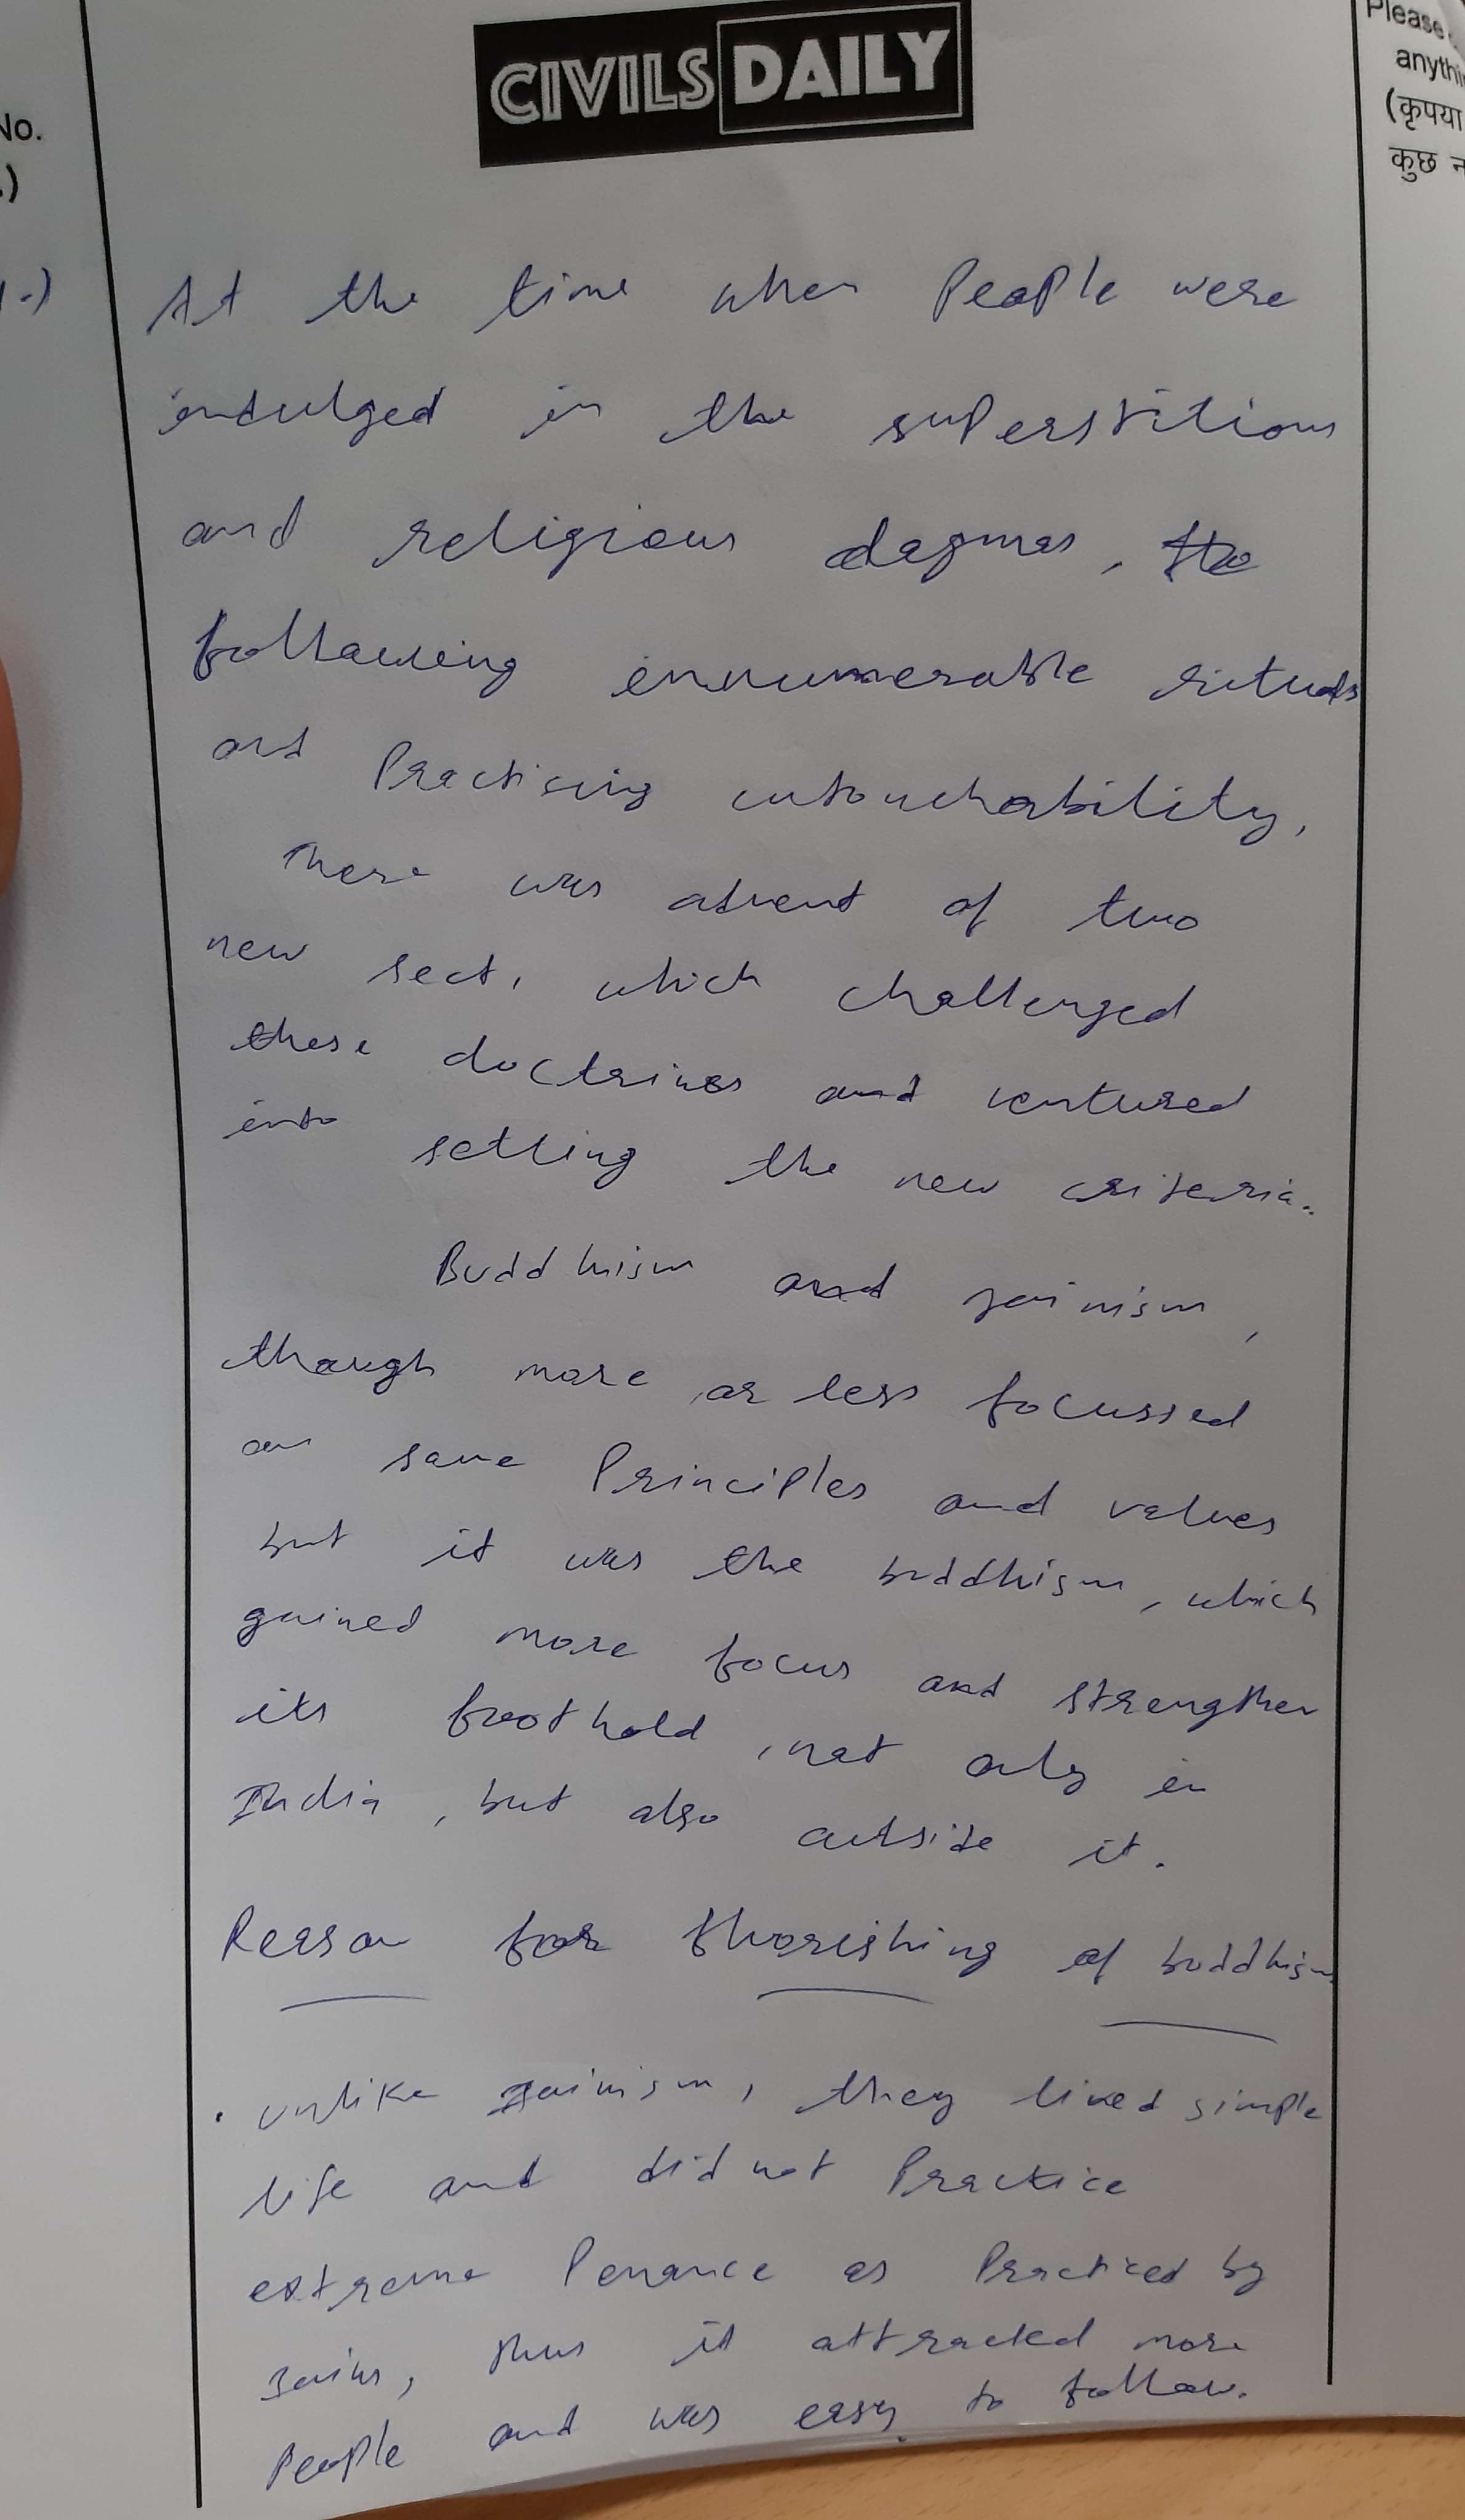 CIVILSDAILY
Please
anythi
(कृपया
कुछ न
No.
.)
1.)
At the time when People were
indulged in the superstitions
and religious dogmas,
following innumerable rituals
and Practising untouchability,
There was advent of two
new sect, which challenged
these doctrines and ventured
into setting the new criteria.
Buddhism and jainism,
though more or less focussed
on same Principles and values
but it was the buddhism, which
gained more focus and strengthen
its foothold, not only in
India, but also outside it.
Reason for flourishing of buddhism
. unlike jainism, they lived simple
life and did not Practice
extreme Penance as Practiced by
jains, thus it attracted more
People and was easy to follow.